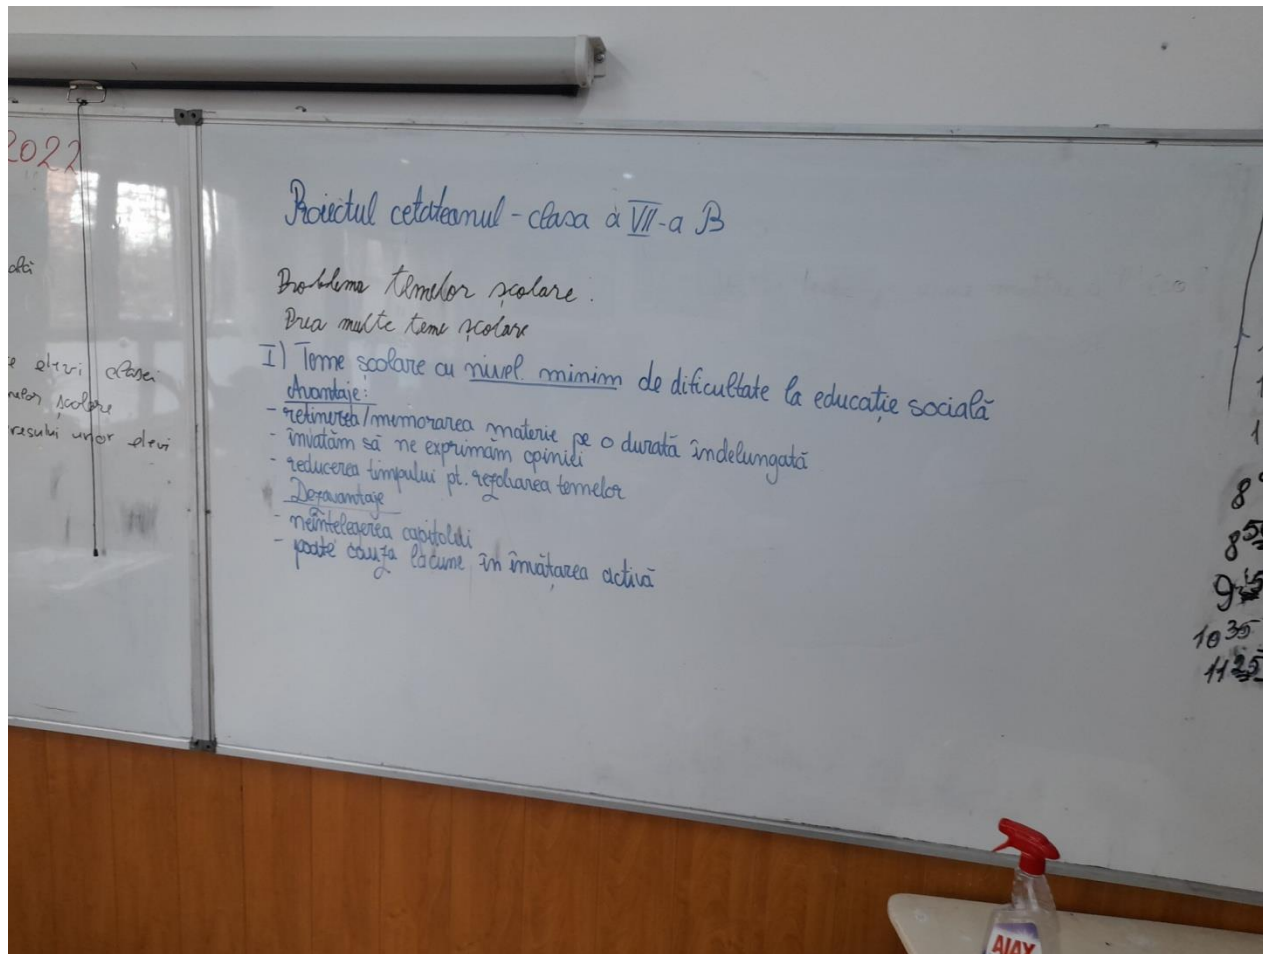 2022
elevi clasei
școlare
unor elevi
Proiectul cetateanul - clasa a VII-a B
Problema temelor școlare.
Prea multe teme școlare
I) Teme școlare cu nivel minim de dificultate la educație socială
Avantaje:
- retinerea/memorarea materie pe o durată îndelungată
- învatăm să ne exprimăm opiniei
- reducerea timpului pt. rezolvarea temelor
Dezavantaje
- neîntelegerea capitolului
- poate cauza lacune în învățarea activă
10 35
11 25
AJAX